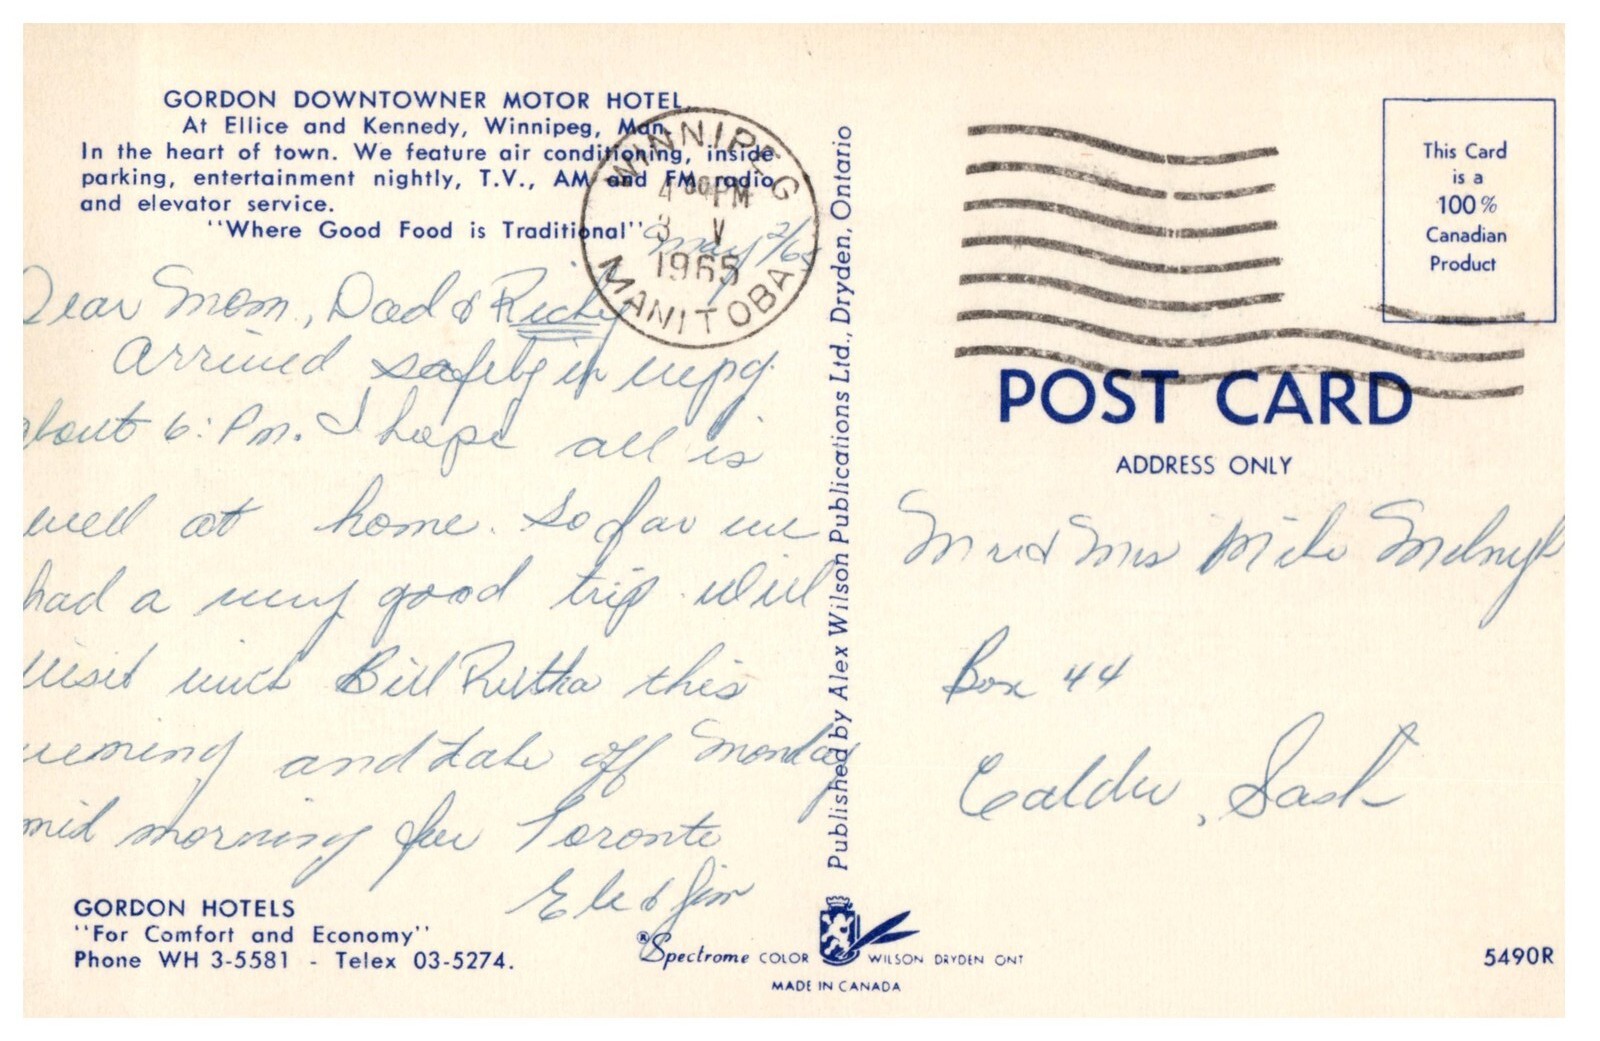 GORDON DOWNTOWNER MOTOR HOTEL,
At Ellice and Kennedy, Winnipeg, Man.
In the heart of town. We feature air conditioning, inside
parking, entertainment nightly, T.V., AM and FM radio
and elevator service.
"Where Good Food is Traditional"
WINNIPEG
4 00 PM
3 V
1965
MANITOBA
May 2/65
Dear Mom, Dad & Ricky
Arrived safely in wpg.
about 6: Pm. I hope all is
well at home. So far we
had a very good trip. Will
visit with Bill Rutka this
evening and take off Monday
mid morning for Toronto
& Jim
GORDON HOTELS
"For Comfort and Economy"
Phone WH 3-5581 - Telex 03-5274.
Published by Alex Wilson Publications Ltd., Dryden, Ontario
®Spectrome COLOR WILSON DRYDEN ONT
MADE IN CANADA
This Card
is a
100%
Canadian
Product
POST CARD
ADDRESS ONLY
Mr and Mrs Mike Melnyk
Box 44
Calder, Sask
5490R